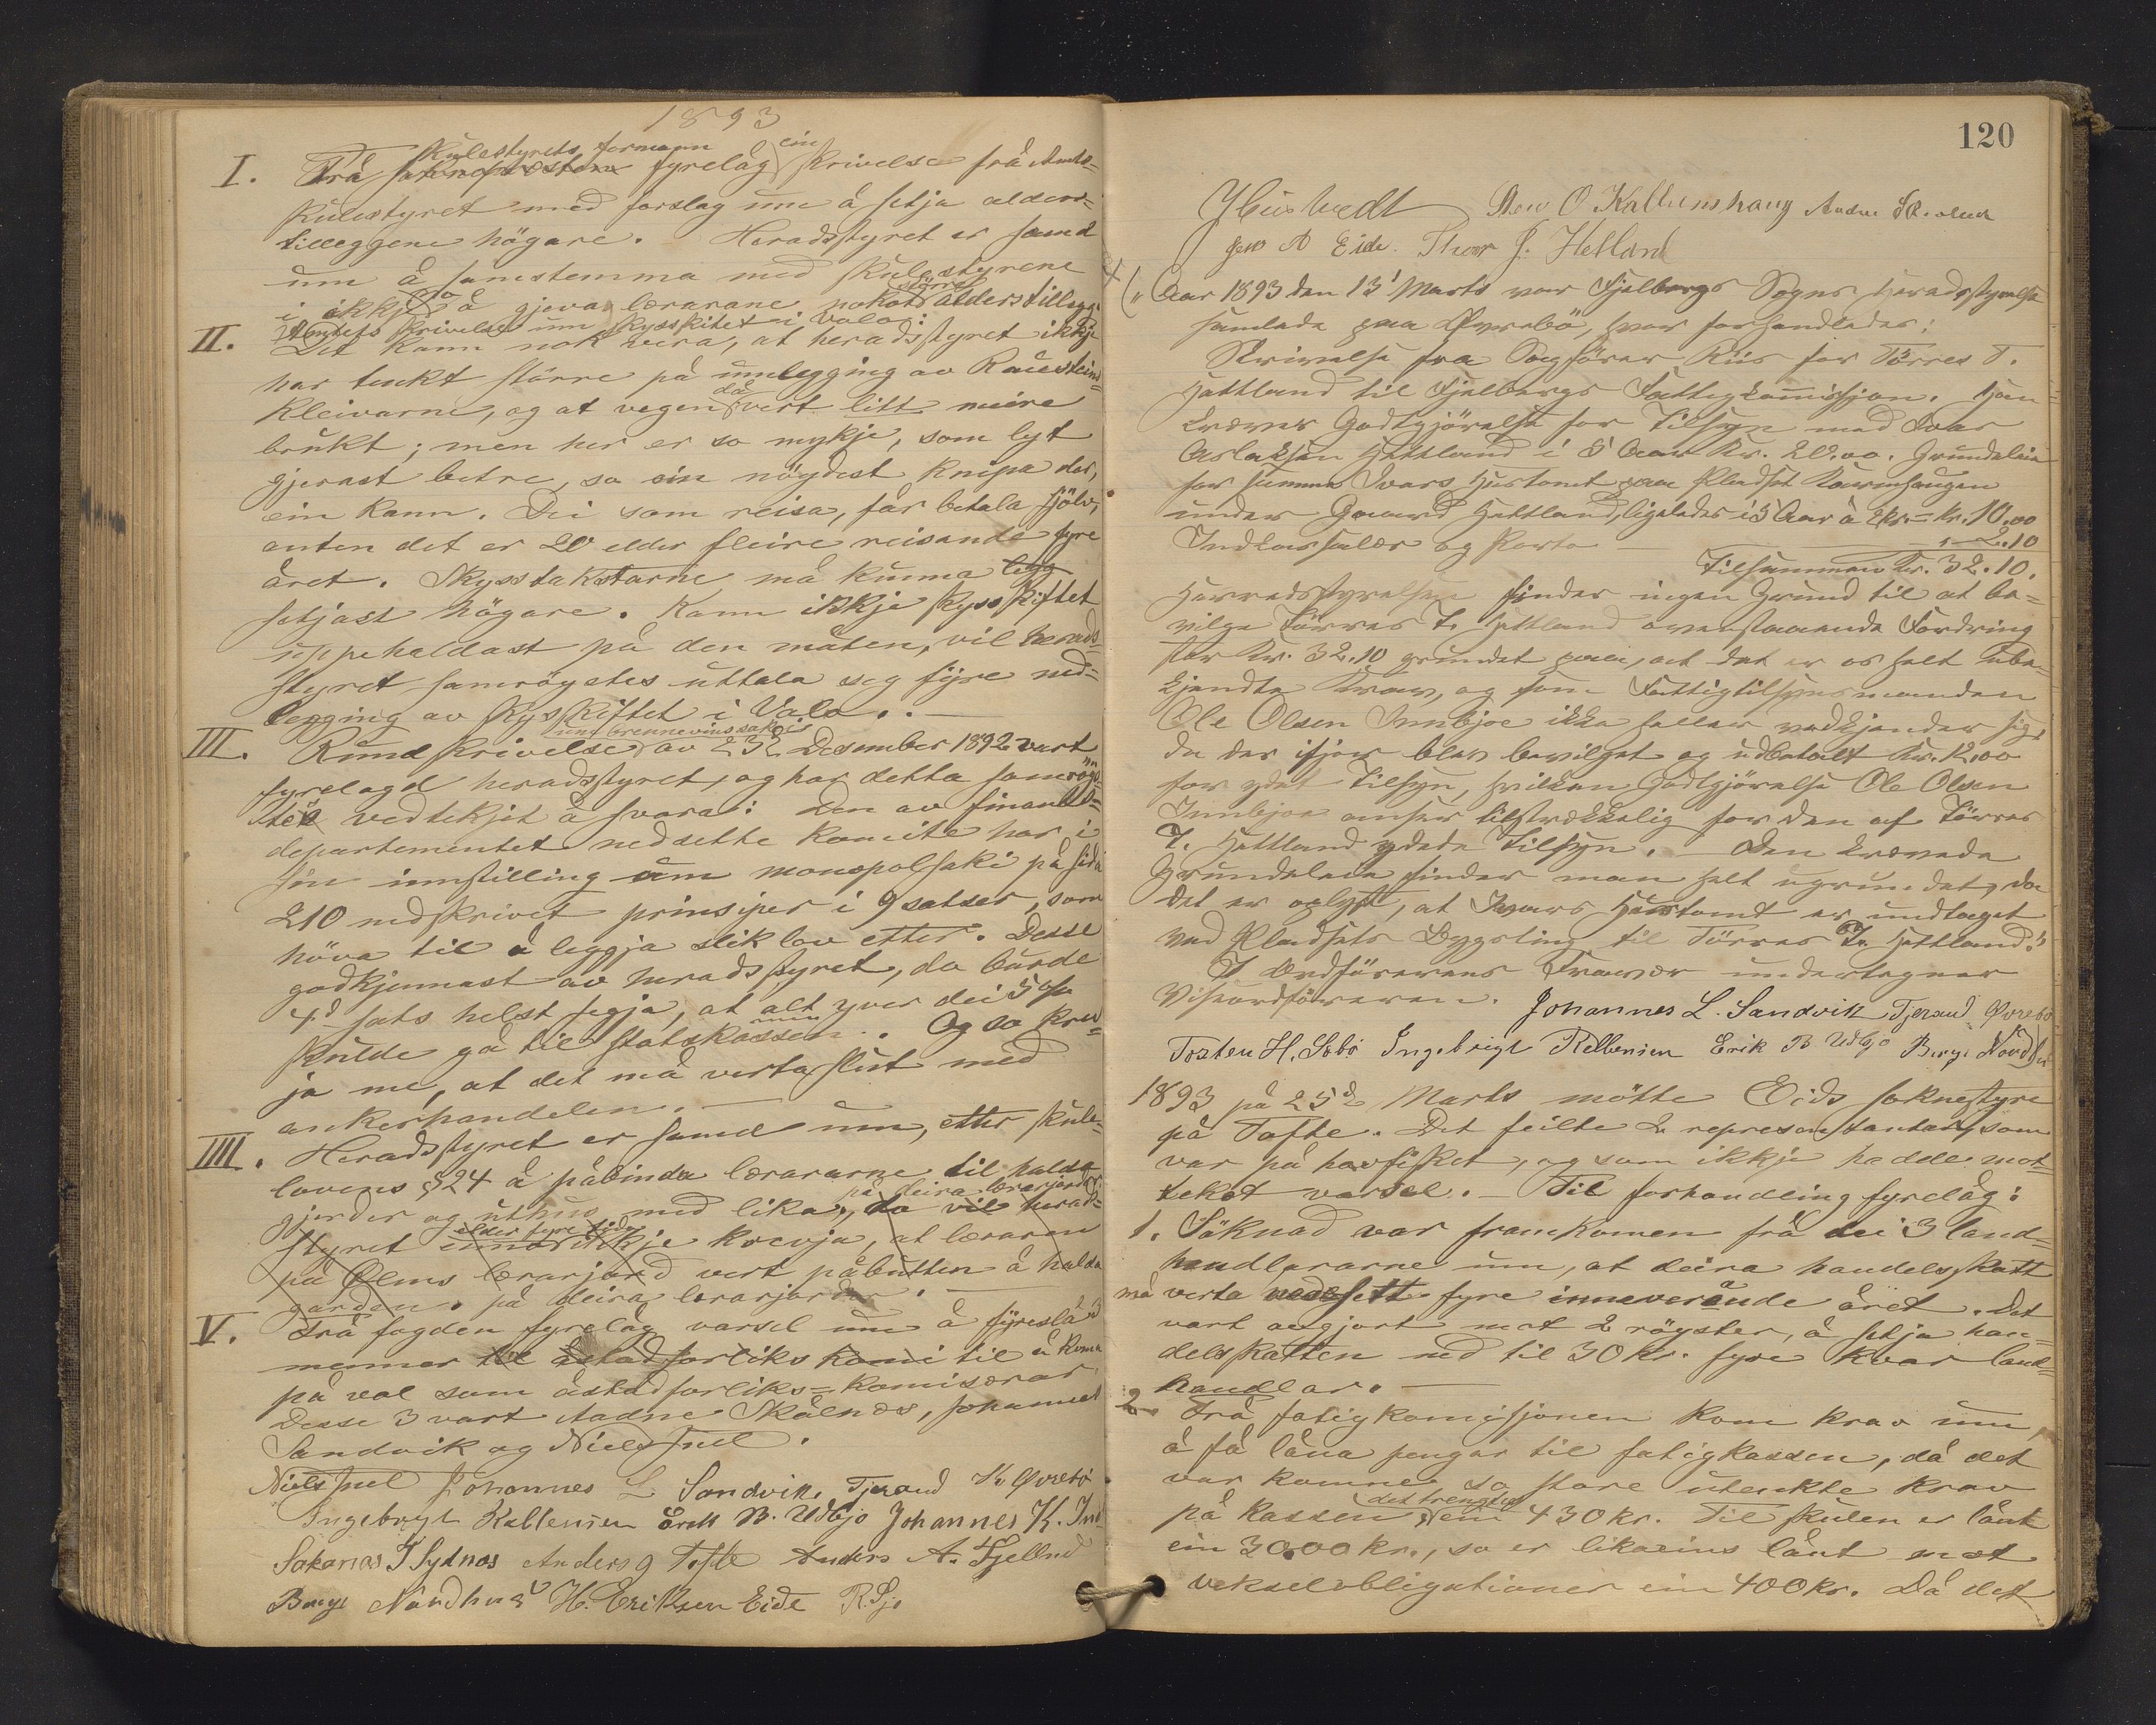 1893
I. Frå skulestyrets formann fyrelåg ein skrivelse frå Amts-
skulestyret med forslag um å setja alders-
tilleggene högare. Heradsstyret er samd
um å samstemma med skulestyrene
i ikkje no å gjeva lærarane nokot större alderstillegg.
II. Amtets skrivelse um skysskiftet i Valo:
Det kann nok vera, at heradsstyret ikkje
har tenkt större på umlegging av Rauestein-
kleivarne, og at vegen då vert litt meire
brukt; men her er so mykje, som lyt
gjerast betre, so ein nöydest knipa der,
ein kann. Dei som reisa, får betala sjölv,
anten det er 20 elder fleire reisande fyre
året. Skysstakstarne må kunna
setjast högare. Kann ikkje skysskiftet
uppehaldast på den måten, vil herads-
styret samröystes uttala seg fyre ned-
legging av skysskiftet i Valo.
III. Rundskrivelse um brennevinssaki av 23d Desember 1892 vart
fyrelagd heradsstyret, og har detta samröys-
tes vedtekjet å svara: Den av finants-
departementet nedsette komite har i
sin innstilling um monopolsaki på sida
210 nedskrivet prinsiper i 9 satser, som
höva til å leggja slik lov etter. Desse
godkjennast av heradsstyret, do burde
4d sats helst segja, at alt yver dei 5 %
skulde gå til statskassen. Og so krev-
ja me, at det må verta slut med
ankerhandelen.
IIII. Heradsstyret er samd um, etter skule-
lovens § 24 å påbinda lærararne til halda
gjerder og uthus med lika på deira lærarjorder, do vil herad-
styret elder fyre tida ikkje krevja, at læraren
på Ølens lærarjord vert påbutten å halda
garden. på deira lærarjorder.
V. Frå fogden fyrelåg varsel um å fyreslå 3
menner til åstadforliks komi til å koma
på val som åstadforliks-komisærar.
Desse 3 vart Aadne Skålnes, Johannes
Sandvik og Niels Juel.
Niels Juel Johannes L. Sandvik. Tjerand K. Øvrebö
Ingebrigt Kallensen Erik B. Udbjo Johannes K. In
Sakarias T Sydnes Anders g Tofte Anders A. Fjellnd
Børge Nordhus H. Eriksen Eide R. Sjo
120
Sten O Kallumshaug
Jens A Eide. Thor J. Hetland
("Aar 1893 den 13' Marts var Fjelbergs Sogns Heradsstyrelse
samlede paa Øvrebö, hvor forhandledes:
Skrivelse fra Sagförer Riis for Törres T.
Hettland til Fjelbergs Fattigkommissjon. Han
kræver Godtgjörelse for Tilsyn med Ivar
Aslaksen Hettland i 5 Aar Kr. 20.00. Grundeleie
for samme Ivars Hustomt paa Pladset Kaurmhaugen
under Gaard Hettland, ligeledes i 5 Aar à 2 kr. = kr. 10.00
Inkassosalær og Porto — " 2.10
Tilsammen Kr. 32.10.
Herredsstyrelsen finder ingen Grund til at be-
vilge Törres T. Hettland ovenstaaende Fordring
stor Kr. 32.10 grundet paa, at det er os helt ube-
kjendte Krav, og som Fattigtilsynsmanden
Ole Olsen Innbjoe ikke heller vedkjender sig,
da der ifjor blev bevilget og udbetalt Kr. 12.00
for ydet Tilsyn, hvilken Godtgjörelse Ole Olsen
Innbjoe anser tilstrækkelig for den af Törres
T. Hettland ydede Tilsyn. Den krævede
Grundeleie finder man helt ugrundet, da
det er oplyst, at Ivars Hustomt er undtaget
ved Pladsets Bygsling til Törres T. Hettland."
I Ordförerens Fravær undertegner
Viseordföreren. Johannes L. Sandvik Tjerand Øvrebö
Tosten H. Söbö Ingebrigt Kallensen Erik B Udbjo Børge Nordhus
1893 på 25d Marts mötte Eids soknestyre
på Tofte. Det feilte 2 representantar, som
var på havfisket, og som ikkje hadde mot-
teket varsel. – Til forhandling fyrelåg:
1. Söknad var framkomen frå dei 3 land-
handlararne um, at deira handelsskatt
må verta nedsett fyre inneverånde året. Det
vart avgjort mot 2 röyster, å setja han-
delsskatten ned til 30 kr. fyre kvar land-
handlar.
2. Frå fatigkomisjonen kom krav um
å få låna pengar til fatigkassen, då det
var komne so store utenkte krav
på kassen det trengtes ein 430 kr. Til skulen er lånt
ein 3000 kr., so er likasins lånt mot
vekselobligationer ein 400 kr. Då det